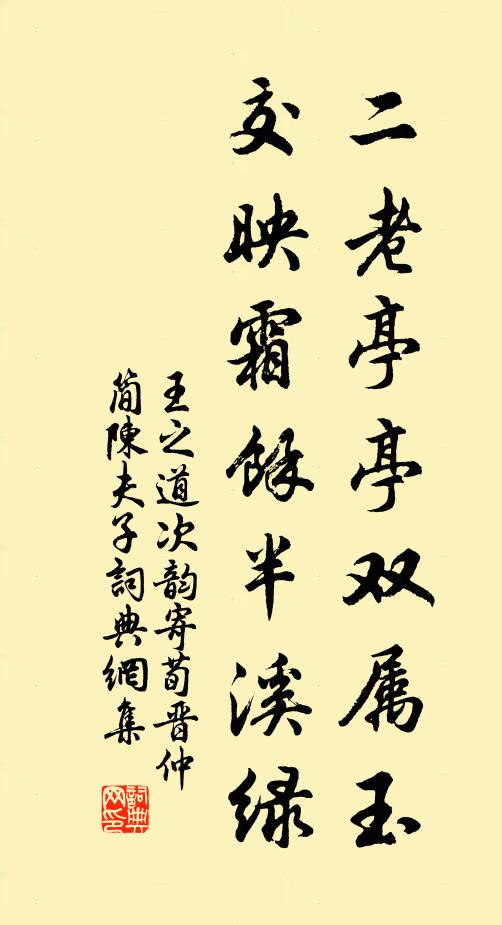 二老亭亭双属玉
交映霜餘半溪绿
王之道次韵寄荀晋仲
简陳夫子詞典網集
詞典
网印